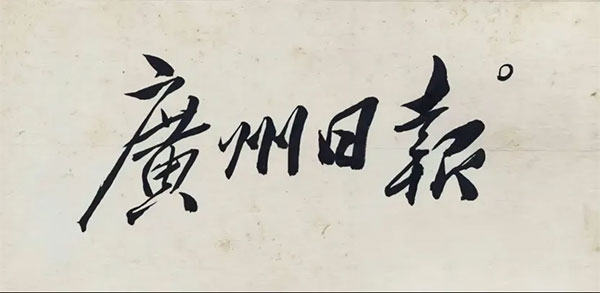 廣州日報